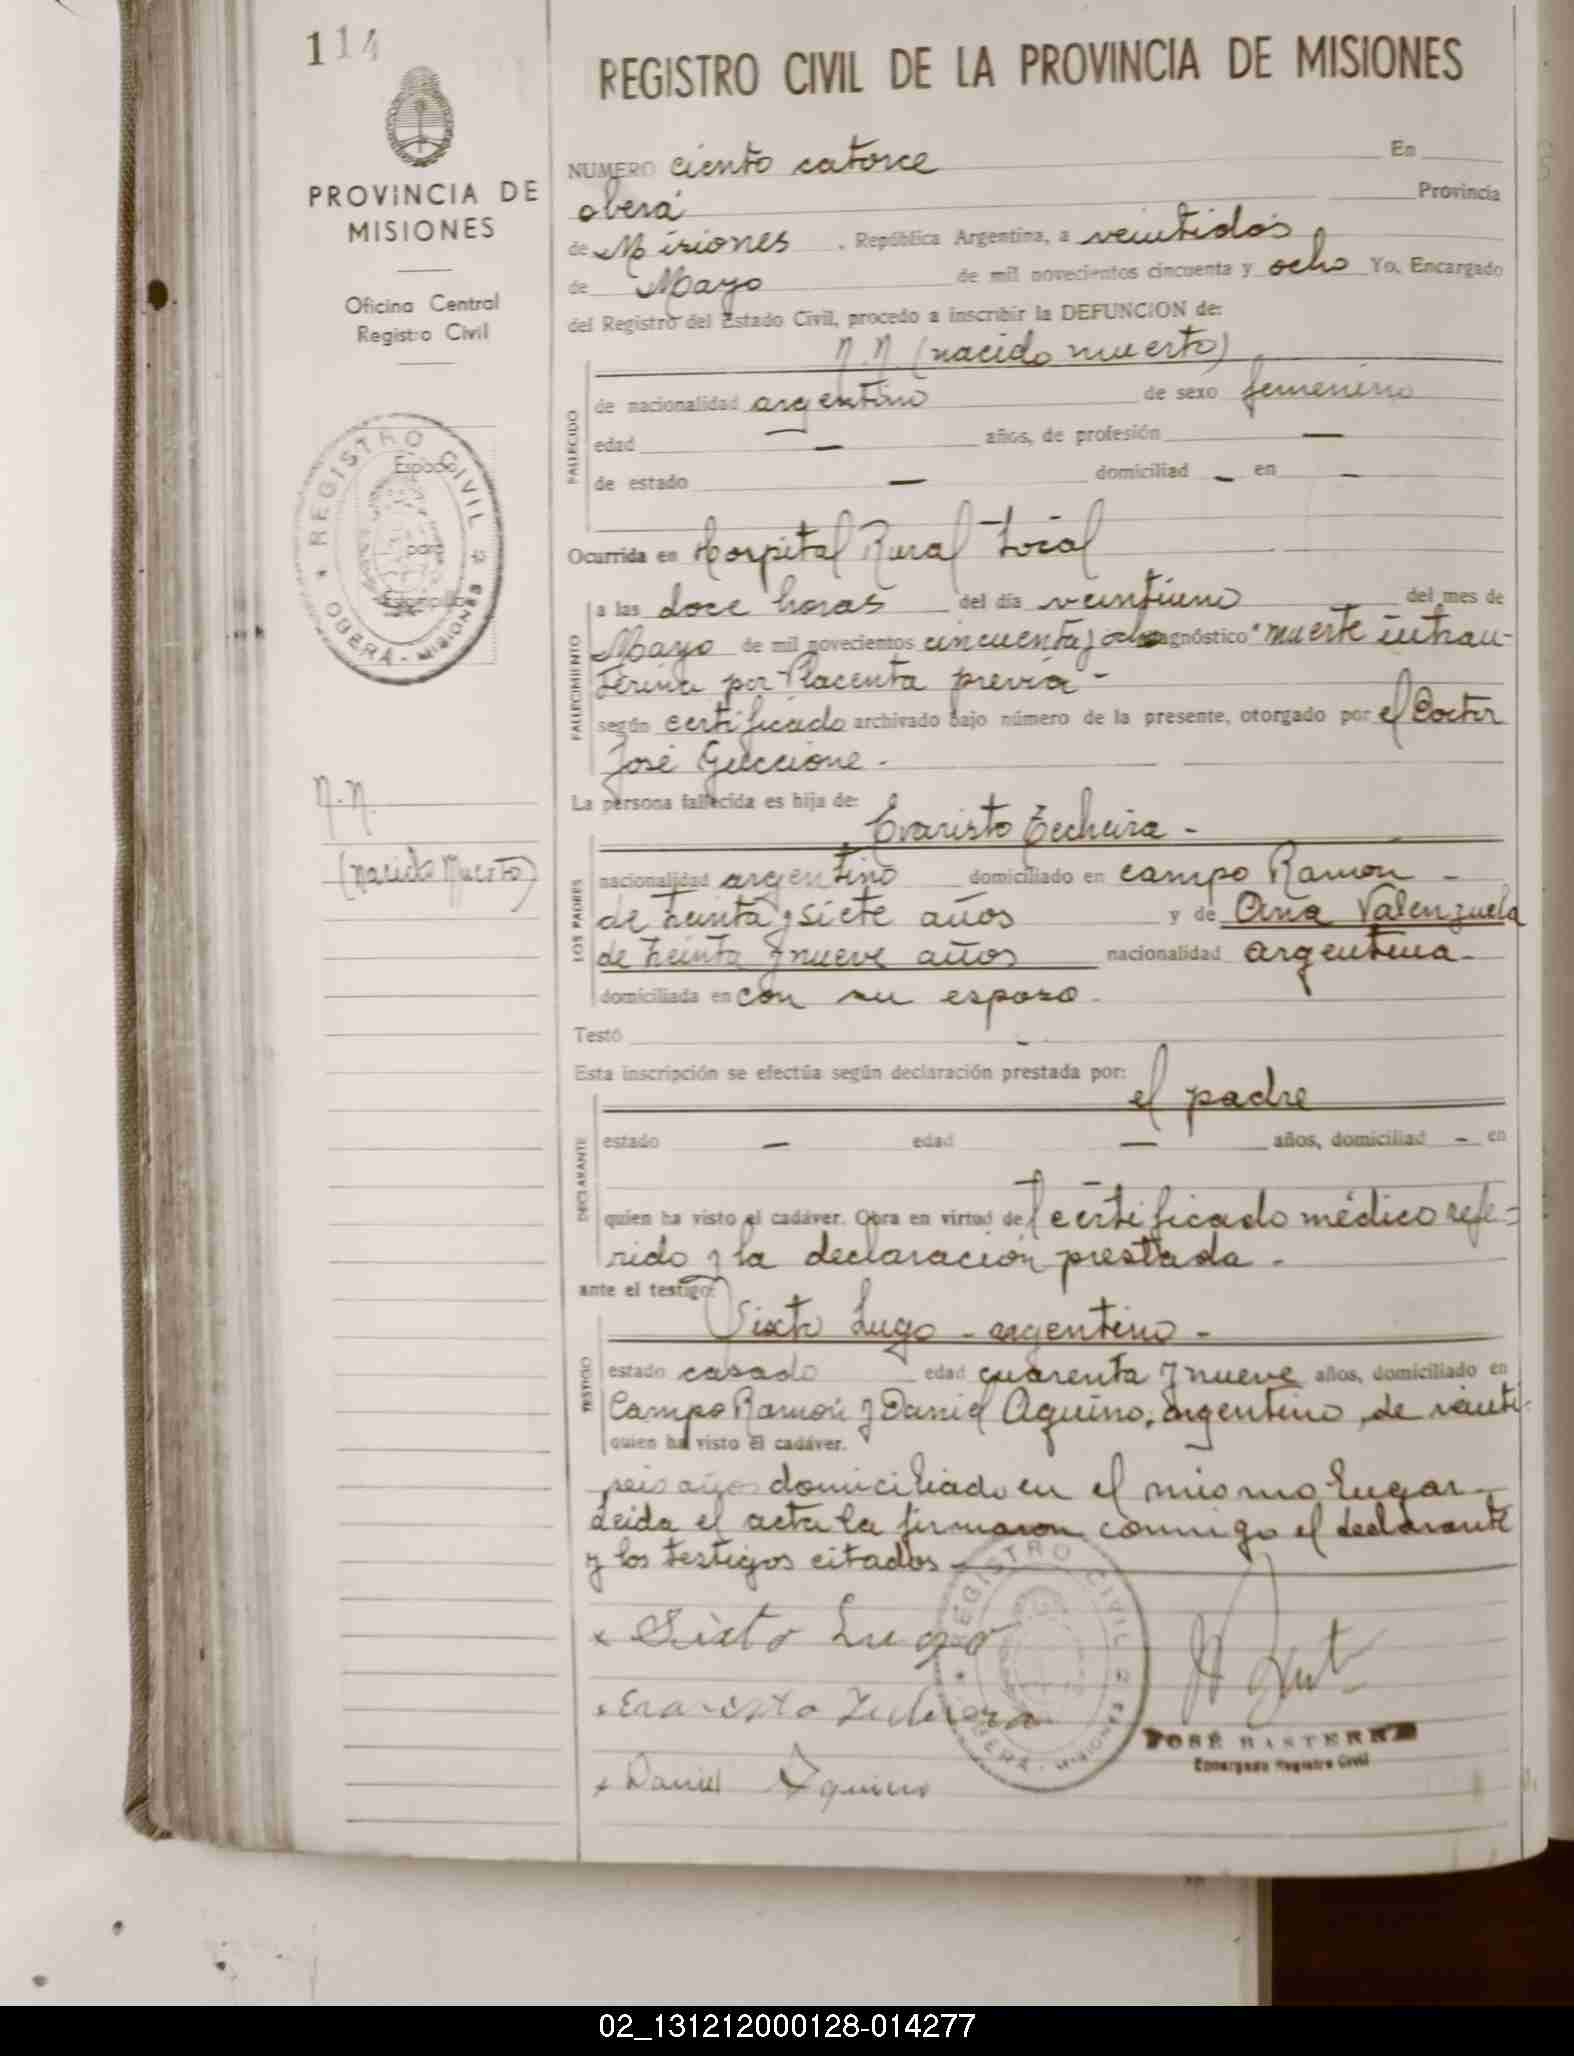 114
REGISTRO CIVIL DE LA PROVINCIA DE MISIONES
PROVINCIA DE
MISIONES
Oficina Central
Registro Civil
REGISTRO CIVIL
OBERÁ - MISIONES
Espacio
para
Estampilla
N.N.
(nacido Muerto)
NUMERO ciento catorce En
oberá Provincia
de Misiones, República Argentina, a veintidós
de Mayo de mil novecientos cincuenta y ocho Yo, Encargado
del Registro del Estado Civil, procedo a inscribir la DEFUNCION de:
N.N. (nacido muerto)
FALLECIDO
de nacionalidad argentino de sexo femenino
edad — años, de profesión —
de estado — domiciliad - en -
Ocurrida en Hospital Rural Local
FALLECIMIENTO
a las doce horas del día veintiuno del mes de
Mayo de mil novecientos cincuenta y ocho diagnóstico "muerte intrau-
terina por Placenta previa -
según certificado archivado bajo número de la presente, otorgado por el Doctor
José Guccione -
La persona fallecida es hija de:
Evaristo Techeira -
LOS PADRES
nacionalidad argentino domiciliado en campo Ramón -
de treinta y siete años y de Ana Valenzuela
de treinta y nueve años nacionalidad argentina -
domiciliada en con su esposo -
Testó -
Esta inscripción se efectúa según declaración prestada por:
el padre
DECLARANTE
estado — edad — años, domiciliad - en
quien ha visto el cadáver. Obra en virtud del certificado médico refe-
rido y la declaración prestada -
ante el testigo:
Sixto Lugo - argentino -
TESTIGO
estado casado edad cuarenta y nueve años, domiciliado en
Campo Ramón y Daniel Aquino, argentino, de veinti-
quien ha visto el cadáver.
seis años domiciliado en el mismo lugar -
Leida el acta la firmaron conmigo el declarante
y los testigos citados
x Sixto Lugo
x Evaristo Techeira
x Daniel Aquino
REGISTRO CIVIL
OBERÁ - MISIONES
JOSÉ BASTERRA
Encargado Registro Civil
02_131212000128-014277